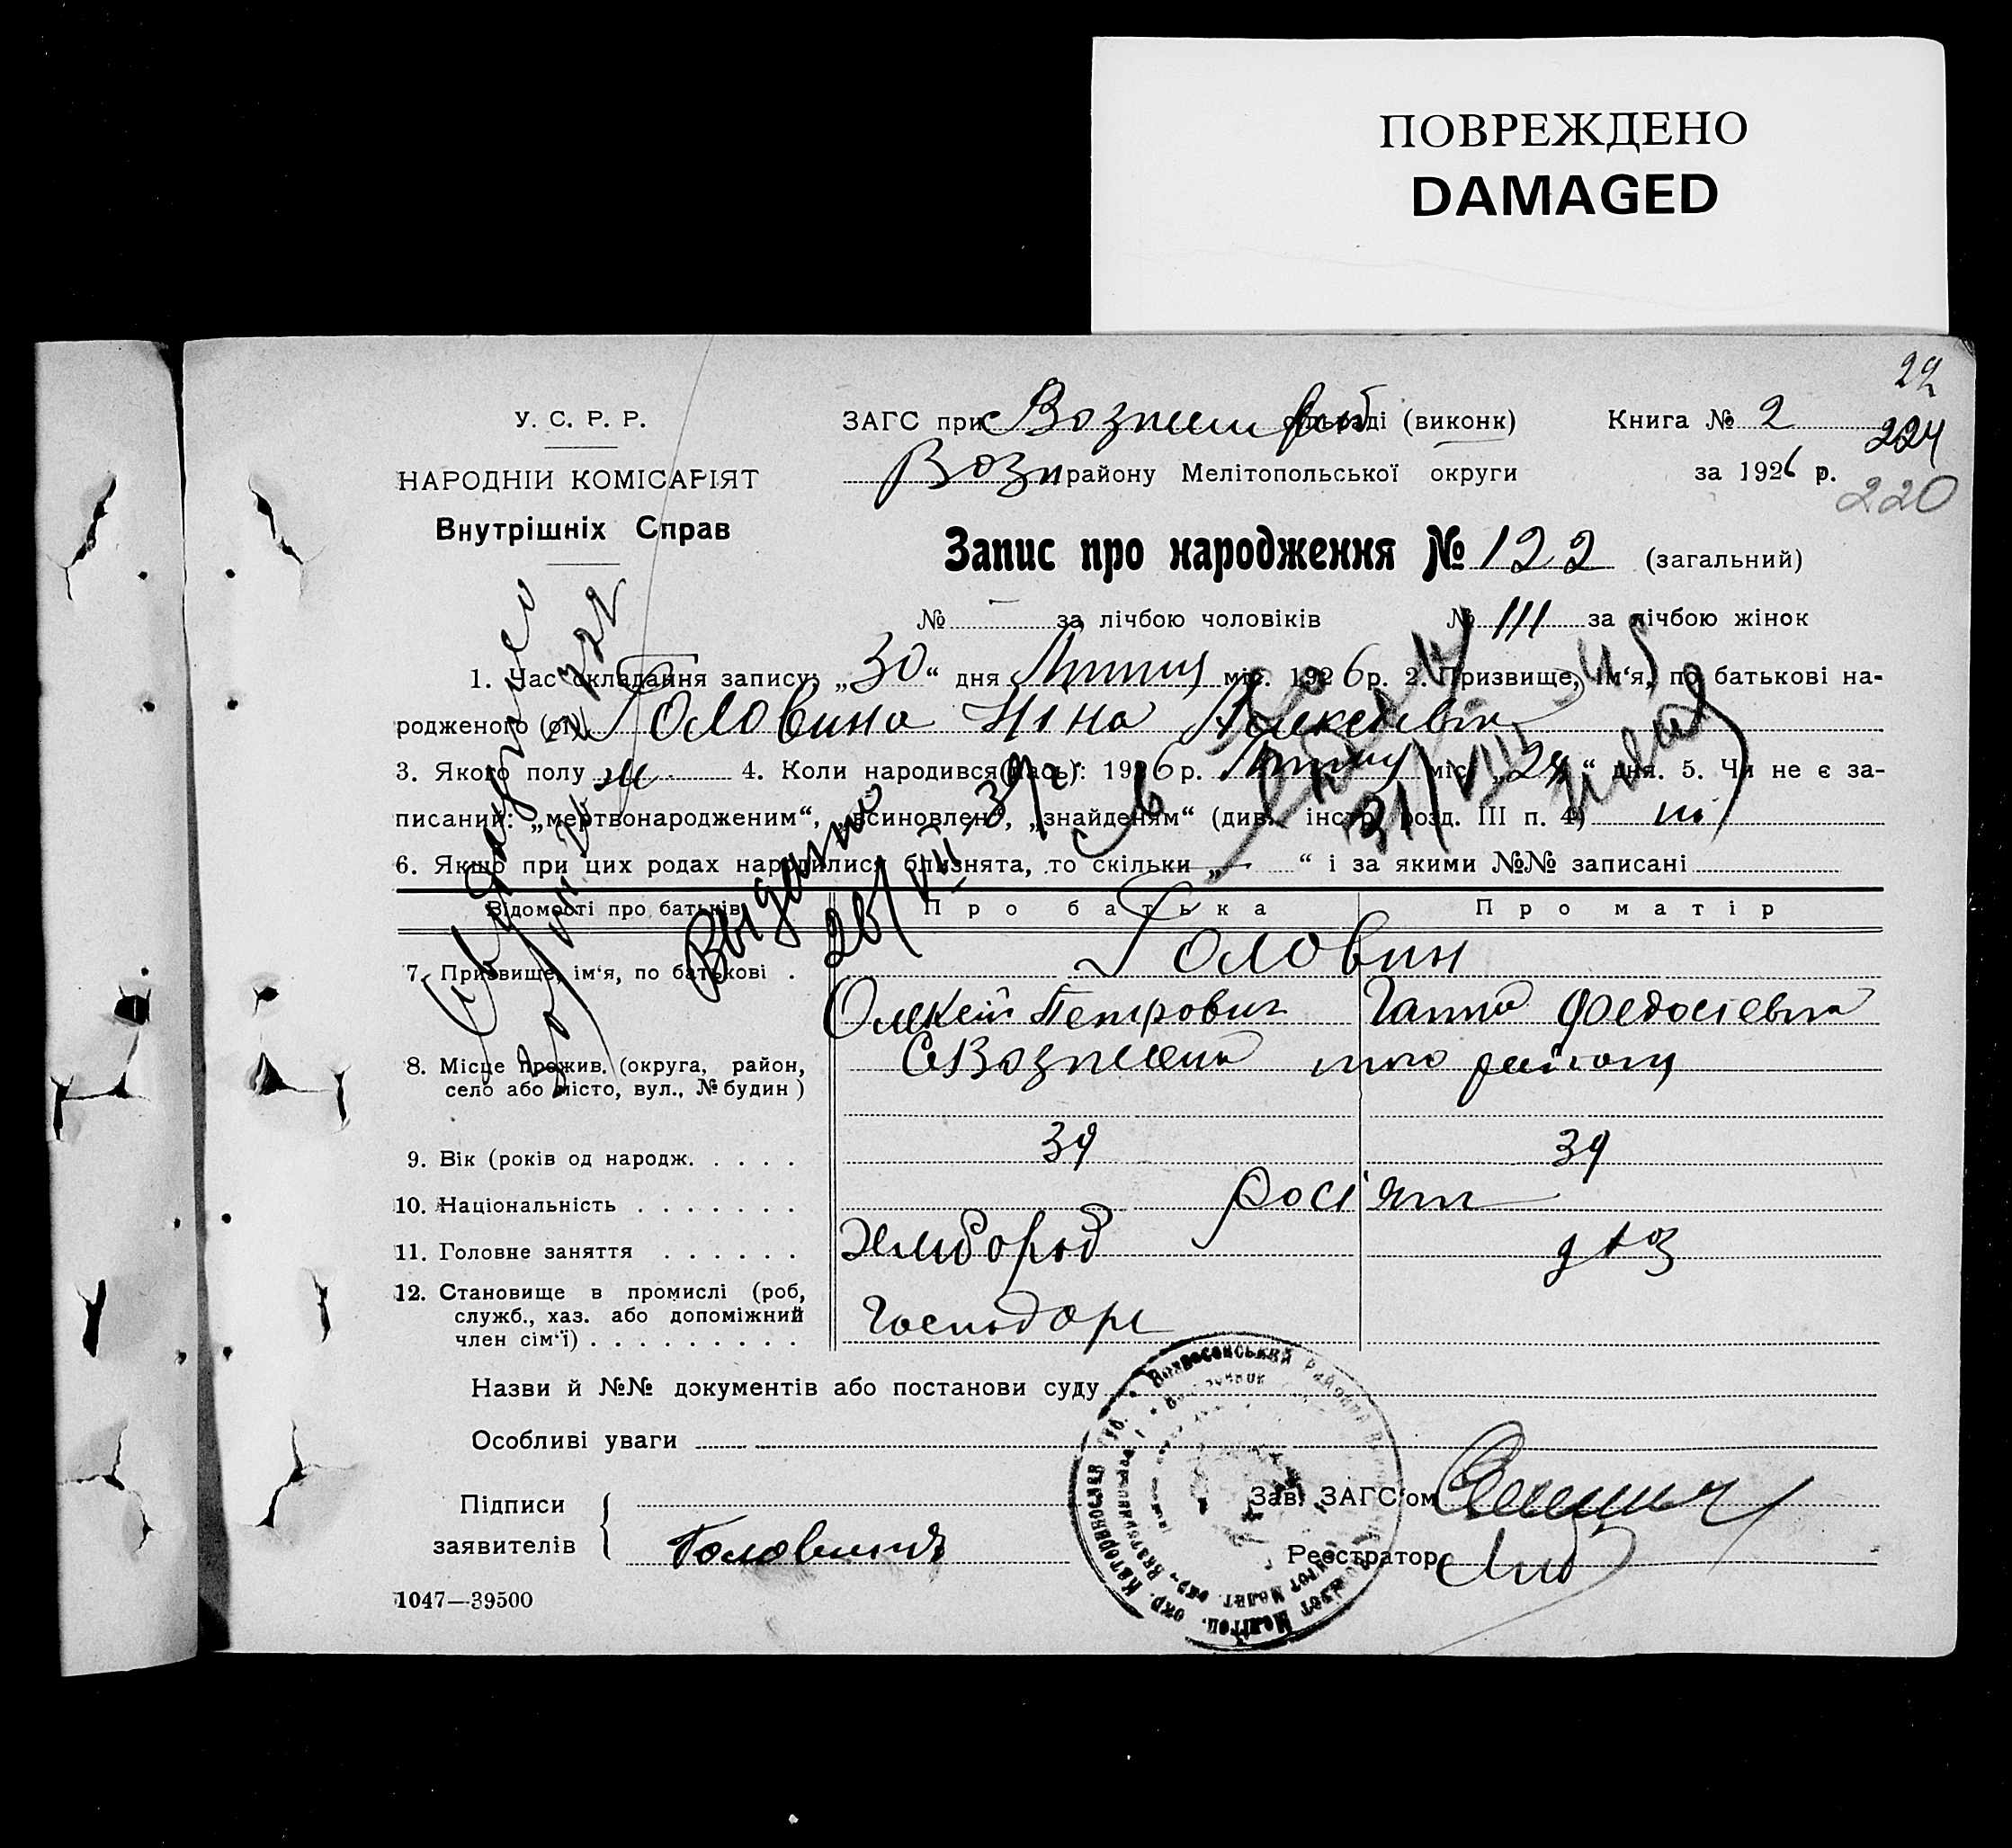 ПОВРЕЖДЕНО
DAMAGED
22
У. С. Р. Р.
НАРОДНІЙ КОМІСАРІЯТ
Внутрішніх Справ
ЗАГС при сільраді (виконк)
Возн району Мелітопольської округи
Книга № 2
224
за 1926 р.
220
Запис про народження № 122 (загальний)
№ — за лічбою чоловіків № 111 за лічбою жінок
1. Час складання запису: „30“ дня Липня міс. 1926 р. 2. Призвище, ім‘я, по батькові на-
родженого (ої) Головина Ніна
3. Якого полу ж. 4. Коли народився (лась): 1926 р. Липня міс. „29“ дня. 5. Чи не є за-
писаний: „мертвонародженим“, „всиновлен“, „знайденям“ (див. інстр. розд. III п. 4) ні
6. Якщо при цих родах народилися близнята, то скільки „—“ і за якими №№ записані
Выдано
Відомості про батьків
Про батька
Про матір
7. Призвище, ім‘я, по батькові .
Головин
Олексій Петрович
Ганна Федосіевна
8. Місце прожив. (округа, район,
село або місто, вул., № будин)
району
9. Вік (років од народж. . . . .
39
39
10. Національність . . . . . . .
росіян
11. Головне заняття . . . . . .
Хлібороб
12. Становище в промислі (роб,
служб., хаз. або допоміжний
член сім‘ї) . . . . . . . . .
Господарь
Назви й №№ документів або постанови суду
Особливі уваги
Підписи
заявителів
Головинъ
Зав. ЗАГС‘ом
Реєстратор
1047—39500